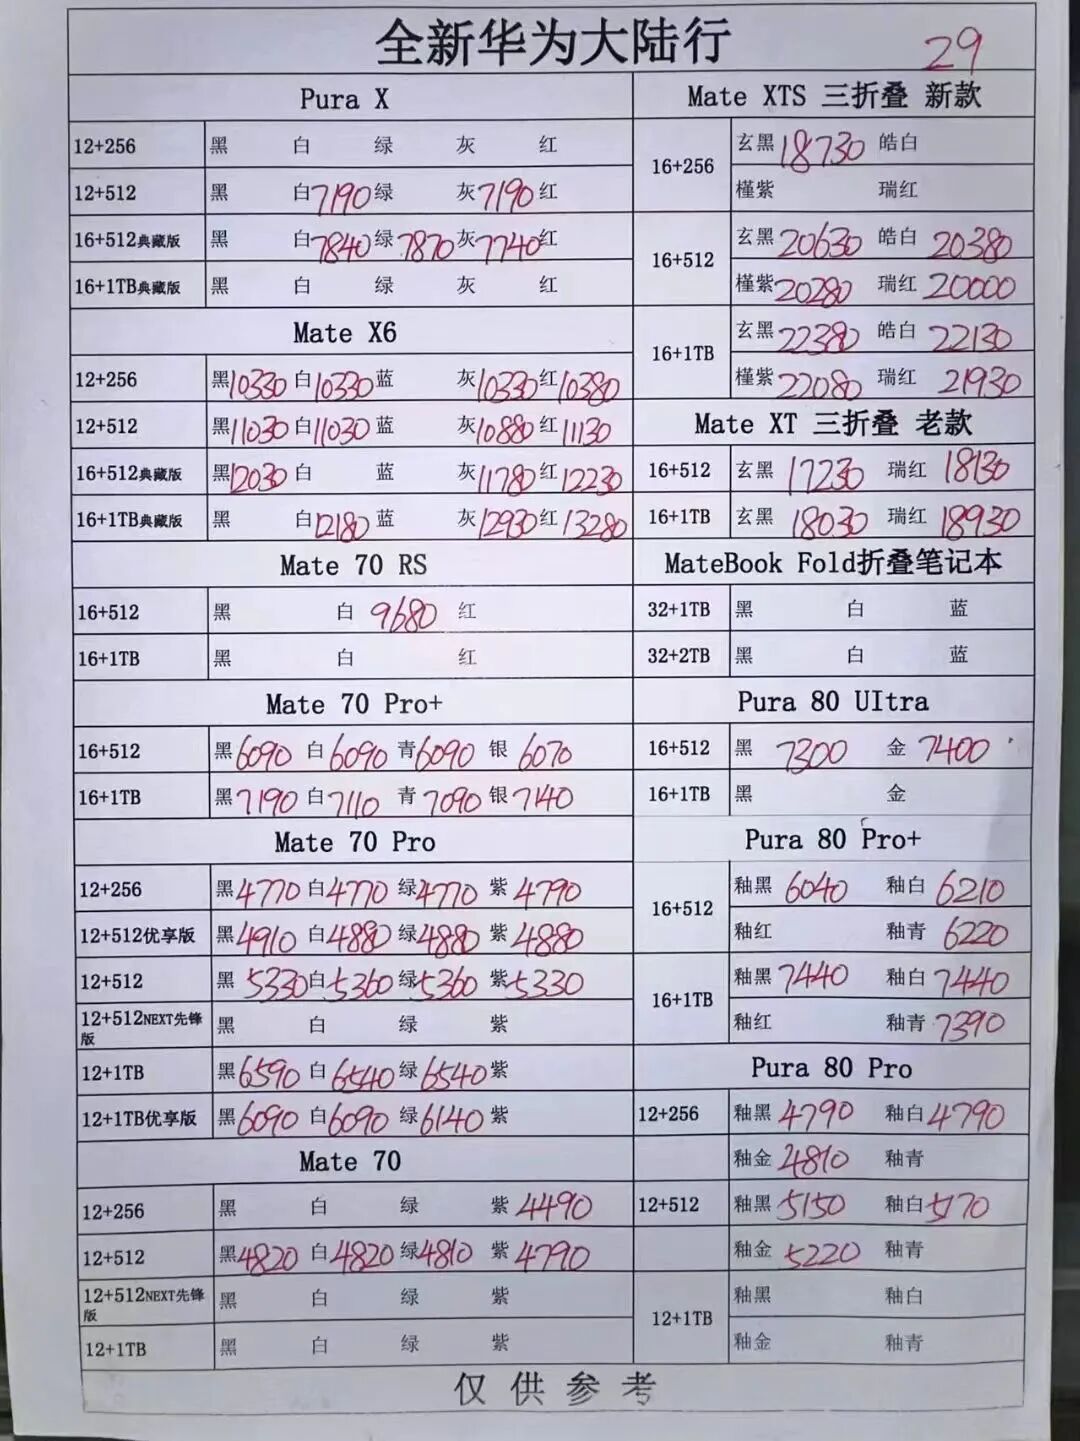 全新华为大陆行 29
Pura X
12+256 黑 白 绿 灰 红
12+512 黑 白7190 绿 灰7190 红
16+512典藏版 黑 白7840 绿7870 灰7740 红
16+1TB典藏版 黑 白 绿 灰 红
Mate X6
12+256 黑10330 白10330 蓝 灰10330 红10380
12+512 黑11030 白11030 蓝 灰10880 红11130
16+512典藏版 黑12030 白 蓝 灰11780 红12230
16+1TB典藏版 黑 白12180 蓝 灰12930 红13280
Mate 70 RS
16+512 黑 白 9680 红
16+1TB 黑 白 红
Mate 70 Pro+
16+512 黑6090 白6090 青6090 银6070
16+1TB 黑7190 白7110 青7090 银7140
Mate 70 Pro
12+256 黑4770 白4770 绿4770 紫4790
12+512优享版 黑4910 白4880 绿4880 紫4880
12+512 黑5330 白5360 绿5360 紫5330
12+512NEXT先锋版 黑 白 绿 紫
12+1TB 黑6590 白6540 绿6540 紫
12+1TB优享版 黑6090 白6090 绿6140 紫
Mate 70
12+256 黑 白 绿 紫4490
12+512 黑4820 白4820 绿4810 紫4790
12+512NEXT先锋版 黑 白 绿 紫
12+1TB 黑 白 绿 紫
Mate XTS 三折叠 新款
16+256 玄黑18730 皓白
槿紫 瑞红
16+512 玄黑20630 皓白20380
槿紫20280 瑞红20000
16+1TB 玄黑22380 皓白22130
槿紫22080 瑞红21930
Mate XT 三折叠 老款
16+512 玄黑17230 瑞红18130
16+1TB 玄黑18030 瑞红18930
MateBook Fold折叠笔记本
32+1TB 黑 白 蓝
32+2TB 黑 白 蓝
Pura 80 UItra
16+512 黑7300 金7400
16+1TB 黑 金
Pura 80 Pro+
16+512 釉黑6040 釉白6210
釉红 釉青6220
16+1TB 釉黑7440 釉白7440
釉红 釉青7390
Pura 80 Pro
12+256 釉黑4790 釉白4790
釉金4810 釉青
12+512 釉黑5150 釉白5170
釉金5220 釉青
12+1TB 釉黑 釉白
釉金 釉青
仅供参考